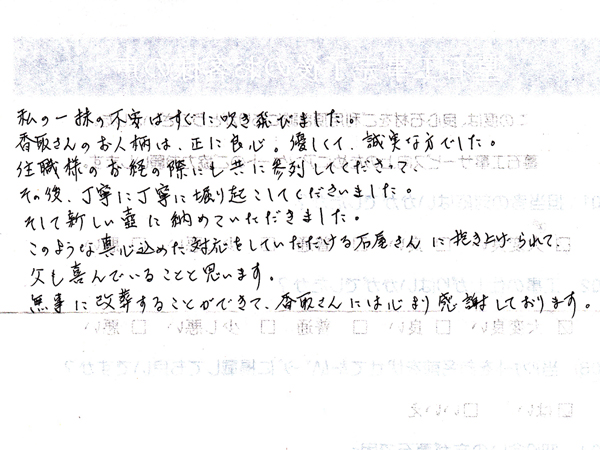 私の一抹の不安はすぐに吹き飛びました。
香取さんのお人柄は、正に良心。優しくて、誠実な方でした。
住職様のお経の際にも共に参列してくださって、
その後、丁寧に丁寧に掘り起こしてくださいました。
そして新しい壷に納めていただきました。
このような真心込めた対応をしていただける石屋さんに抱き上げられて、
父も喜んでいることと思います。
無事に改葬することができて、香取さんには心より感謝しております。